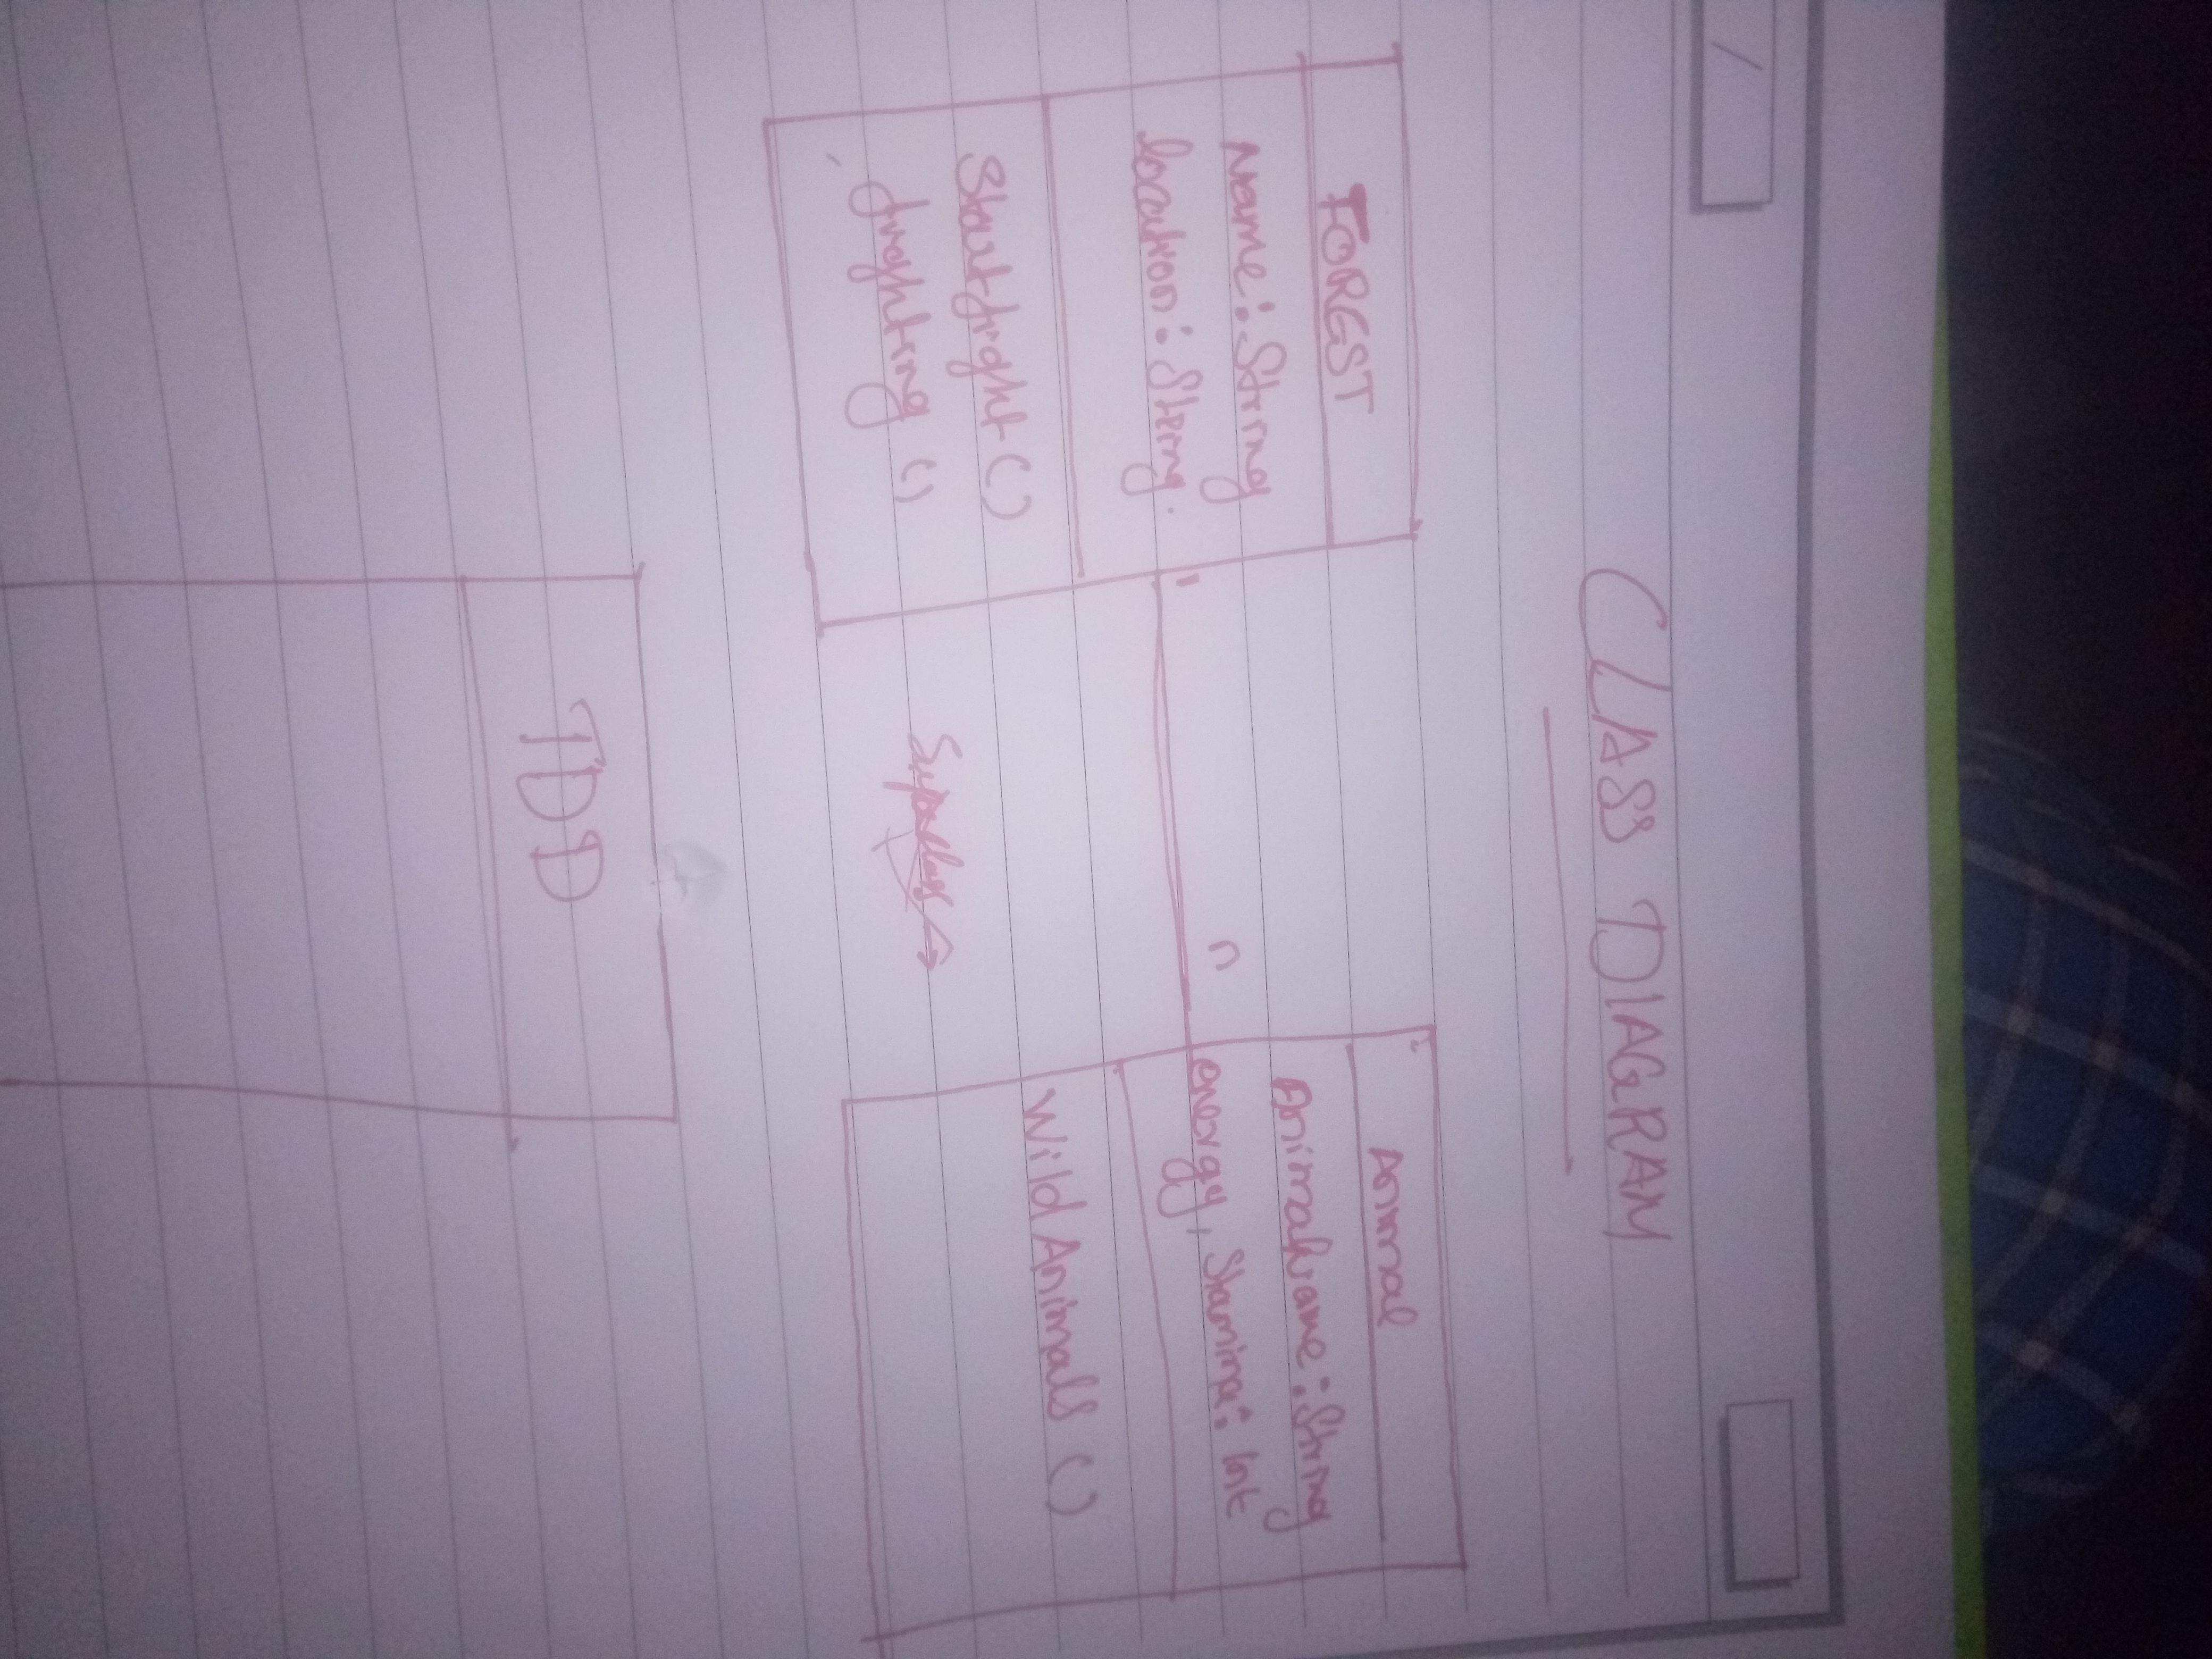 CLASS DIAGRAM
FOREST
Name : String
location : String.
Startfight ()
fighting ()
1
n
Animal
AnimalName : String
energy, Stamina : Int
Wild Animals ()
TDD